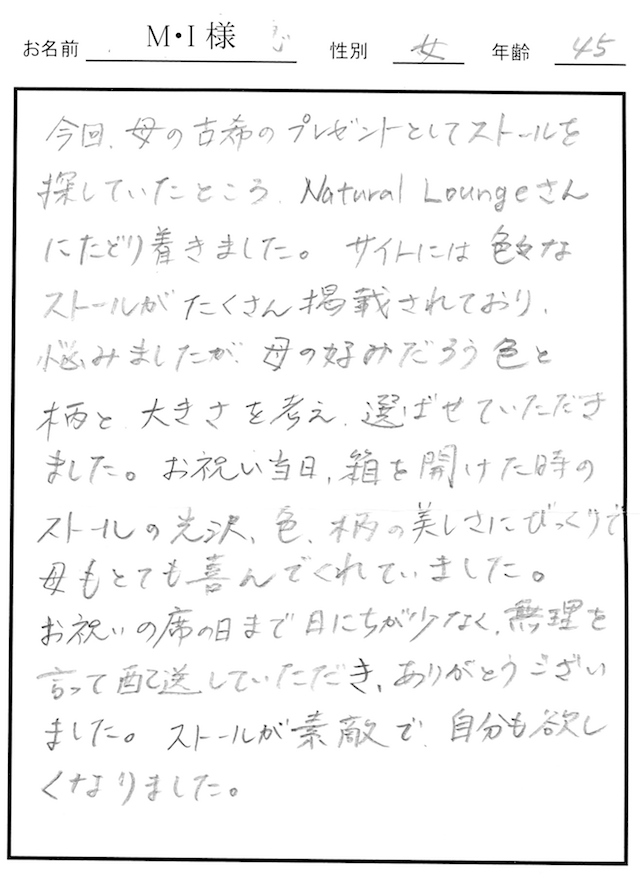 お名前 M・I様 性別 女 年齢 45
今回、母の古希のプレゼントとしてストールを
探していたところ、Natural Loungeさん
にたどり着きました。サイトには色々な
ストールがたくさん掲載されており、
悩みましたが、母の好みだろう色と
柄と、大きさを考え、選ばせていただき
ました。お祝い当日、箱を開けた時の
ストールの光沢、色、柄の美しさにびっくりで
母もとても喜んでくれていました。
お祝いの席の日まで日にちが少なく、無理を
言って配送していただき、ありがとうござい
ました。ストールが素敵で、自分も欲し
くなりました。